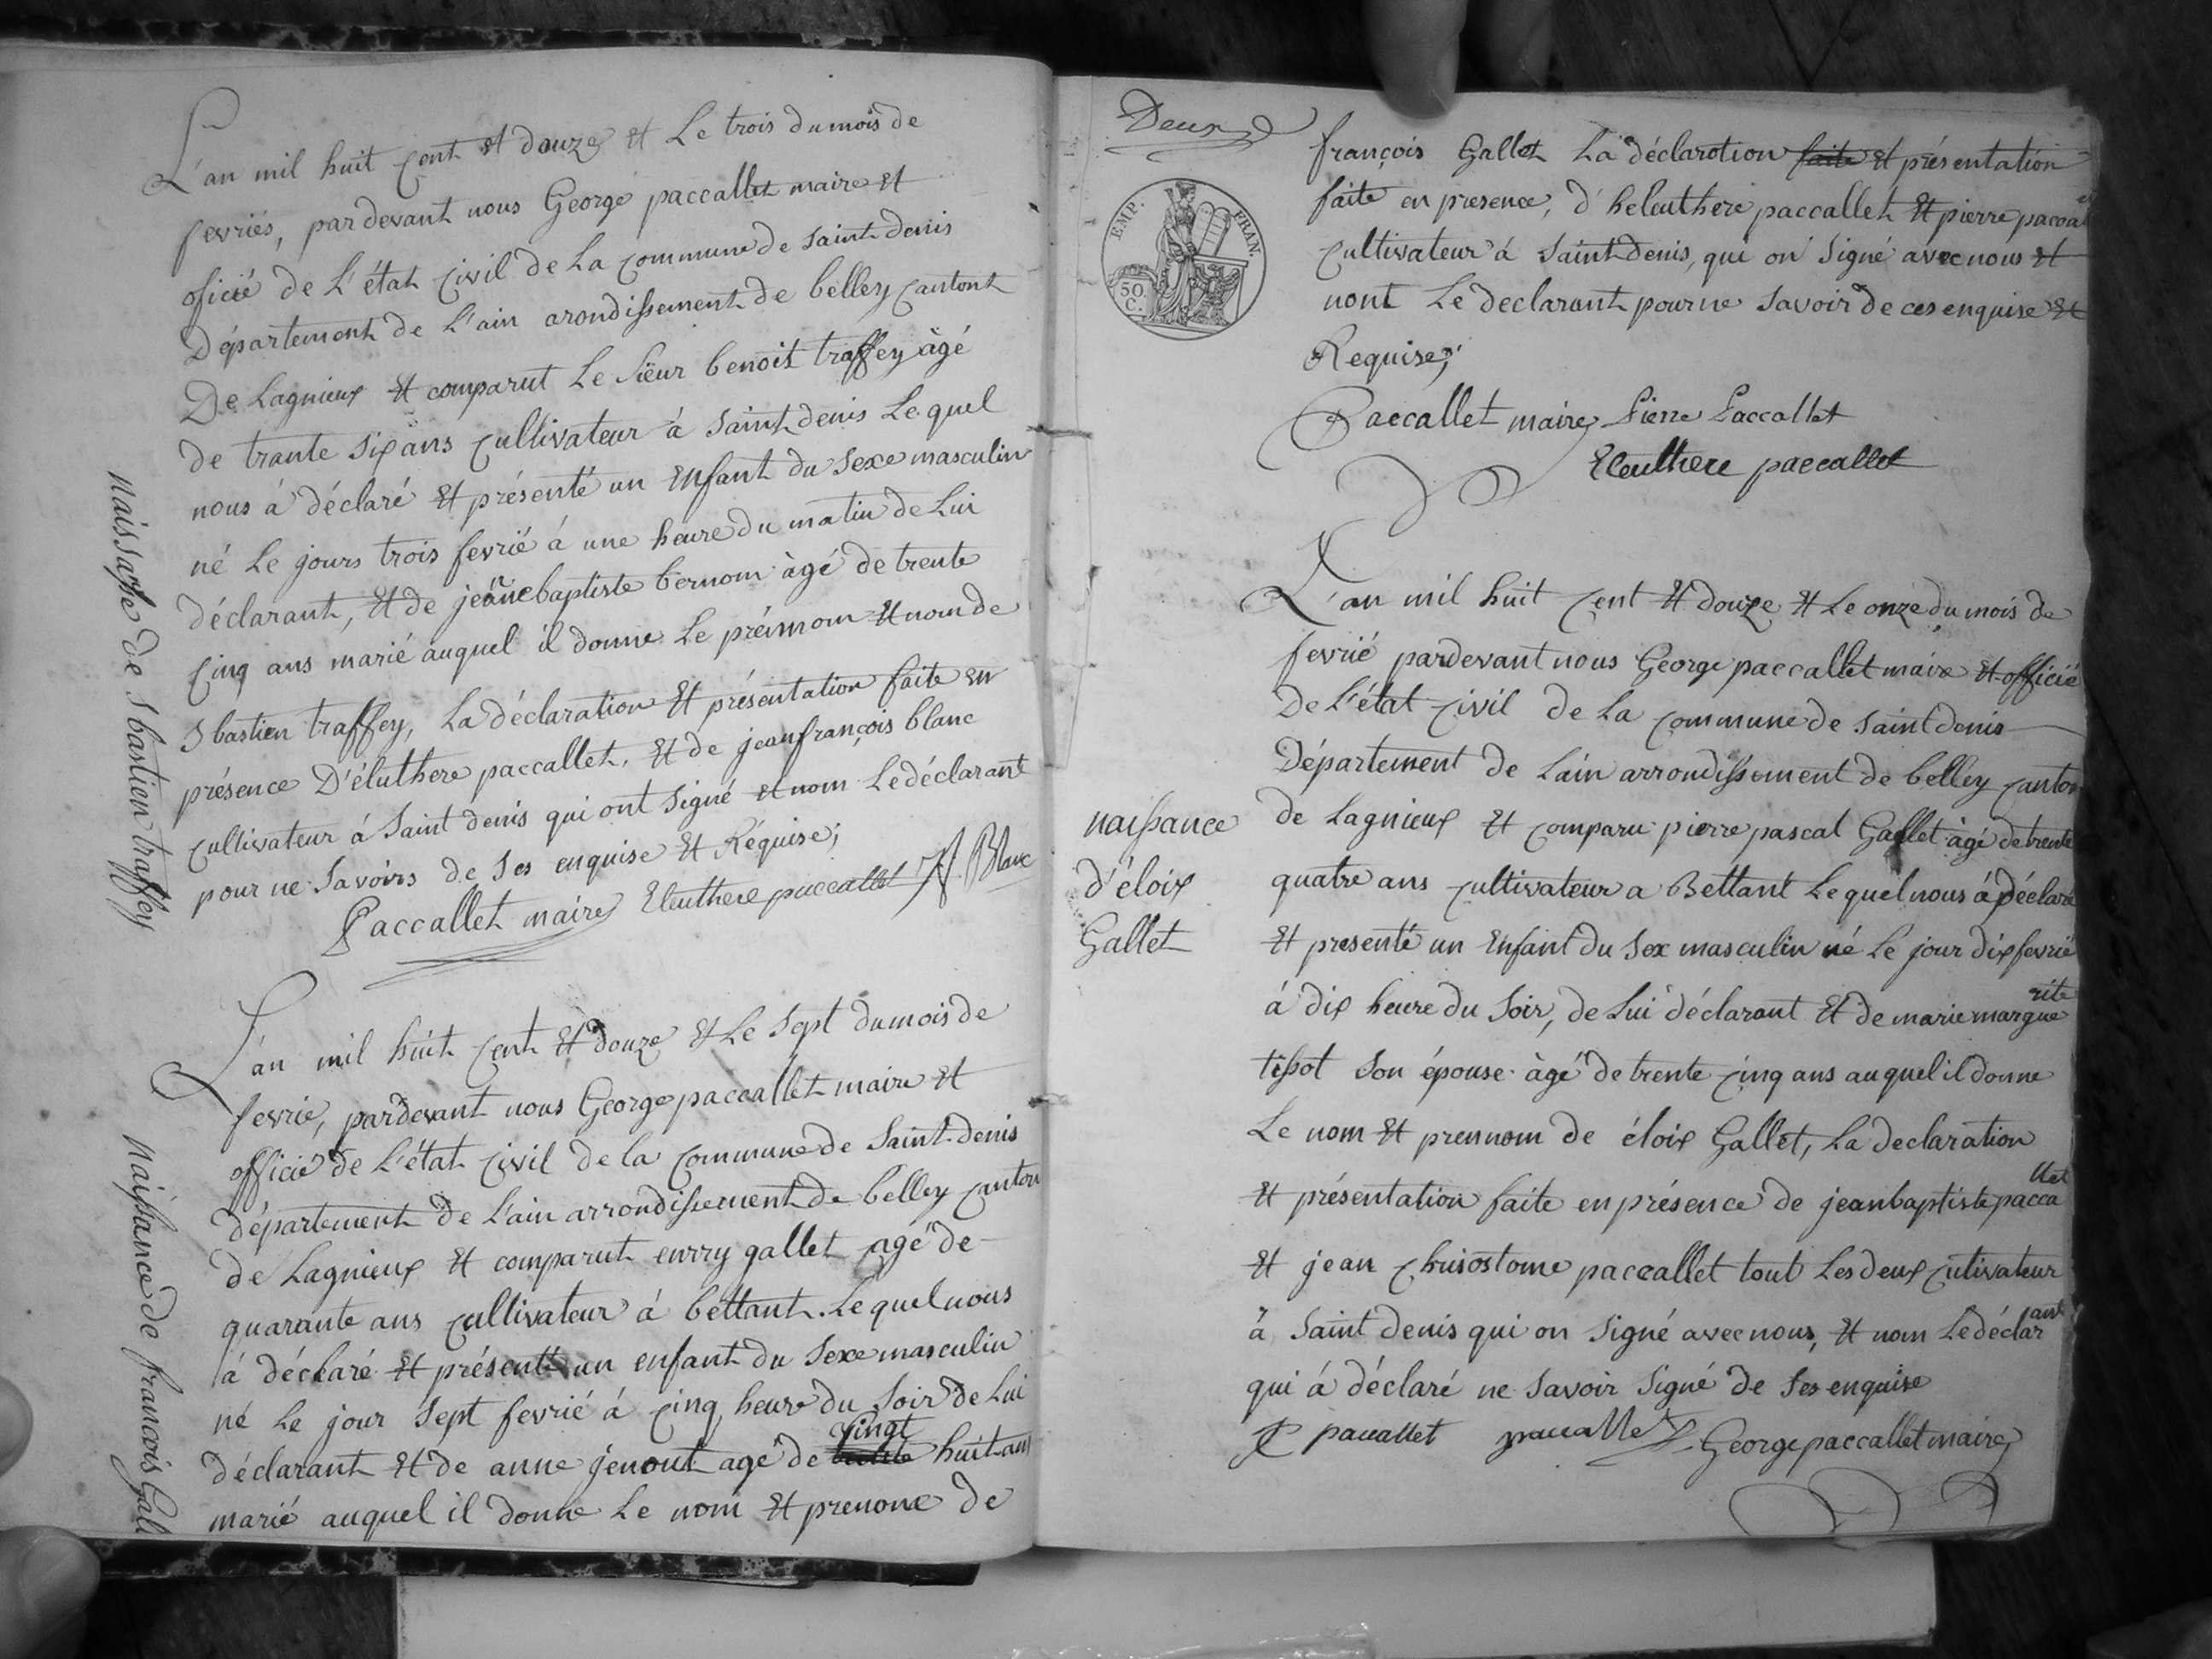 L'an mil huit cent et douze et Le trois du mois de
fevriés, pardevant nous George paccallet maire et
oficié de L'état Civil de La commune de Saint denis
Département de L'ain arondissement de belley cantont
De Lagnieux et comparut Le Sieur benoit traffey àgé
de trante six ans cultivateur à Saint denis Le quel
nous à déclaré et présenté un enfant du Sexe masculin
né Le jours trois fevrié à une heure du matin de Lui
déclarant, et de jeanne baptiste bernom àgé de trente
cinq ans marié auquel il donne Le prénnom et nom de
Sbastien traffey, La déclaration et présentation faite en
présence D'éluthere paccallet, et de jean françois blanc
cultivateur à Saint denis qui ont Signé et nom Le déclarant
pour ne Savoirs de Ses enquise et Réquise;
Paccallet maire Eleuthere paccallet Jf. Blanc
naissance de Sbastien traffey
L'an mil huit cent et douze et Le Sept du mois de
fevrie, pardevant nous George paccallet maire et
officié de L'état Civil de la Commune de Saint-denis
département de L'ain arrondissement de belley canton
de Lagnieux et comparut enrry gallet agé de
quarante ans cultivateur à bettant. Le quel nous
à déclaré et présenté un enfant du Sexe masculin
né Le jour Sept fevrié à cinq heure du Soir de Lui
déclarant et de anne jenout agé de vingt huit ans
marié auquel il donne Le nom et prenome de
naissance de francois Gall
Deux
EMP. FRAN.
50 C.
françois Gallet La déclarotion faite et présentation
faite en presence, d'heleuthere paccallet et pierre paccal
Cultivateur à Saint denis, qui on Signé avec nous et
nont Le declarant pour ne Savoir de ces enquise et
Requise;
Paccallet maire Pierre Paccallet
Eleuthere paccallet
L'an mil huit Cent et douze et Le onze du mois de
fevrié pardevant nous George paccallet maire et officié
De L'état Civil de La commune de Saint denis
Département de Lain arrondissement de belley canton
de Lagnieux et comparu pierre pascal Gallet àgé de trente
quatre ans cultivateur a Bettant Le quel nous à déclaré
et presenté un Enfant du Sex masculin né Le jour dix fevrié
à dix heure du Soir, de Lui déclarant et de marie marguerite
tissot Son épouse àgé de trente cinq ans auquel il donne
Le nom et prennom de éloix Gallet, La declaration
et présentation faite en présence de jean baptiste paccallet
et jean Chrisostome paccallet tout Les deux cutivateur
à Saint denis qui on Signé avec nous, et nom Le déclarant
qui à déclaré ne Savoir Signé de Ses enquise
paccallet paccallet George paccallet maire
naissance
d'éloix
Gallet